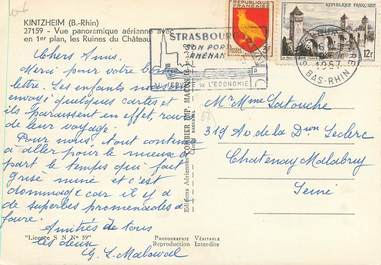 KINTZHEIM (B.-Rhin)
27159 - Vue panoramique aérienne avec
en 1er plan, les Ruines du Château
Chers Amis.
Merci pour votre bonne
lettre. Les enfants nous ont
envoyé quelques cartes et
ils paraissent en effet, ravis
de leur voyage.
Pour nous, tout continue
à aller pour le mieux à
part le temps qui fait
grise mine et c'est
dommage car il y a
de superbes promenades à
faire.
Amitiés de tous
les deux
"Licence S N N° 59"
Editions Aériennes COMBIER MACON
PHOTOGRAPHIE VÉRITABLE
Reproduction Interdite
STRASBOURG
SON PORT
RHÉNAN
DE L'ECONOMIE
REPUBLIQUE FRANÇAISE
REPUBLIQUE FRANÇAISE
12F
BAS-RHIN
Mr Mme Latouche
319 Av de la Dion Leclerc
Chatenay Malabry
Seine